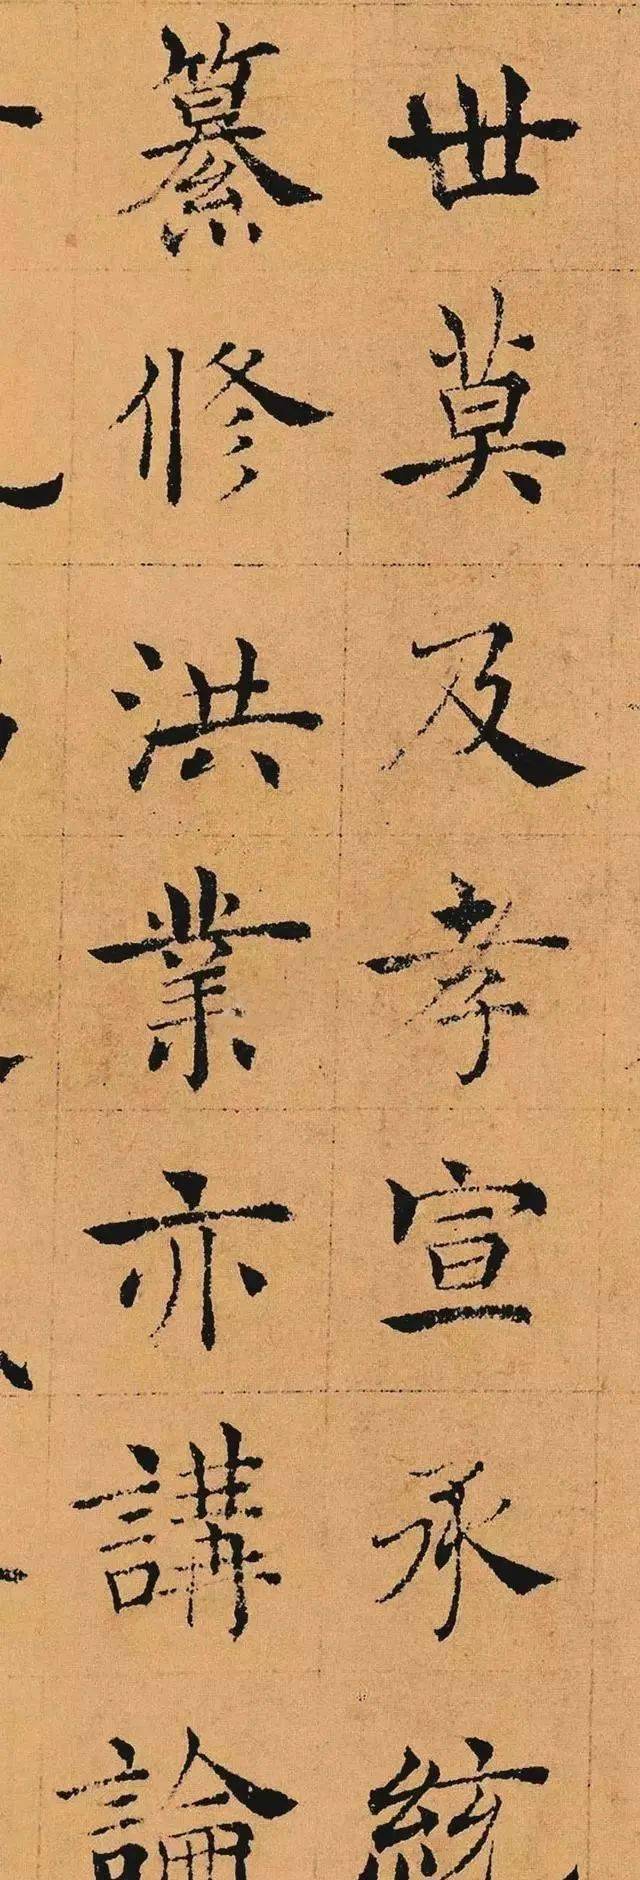 世莫及孝宣承統
纂修洪業亦講論